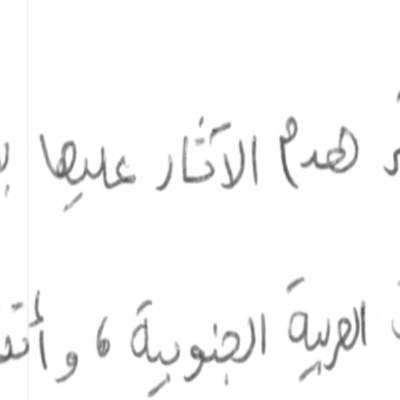 هدم الآثار عليها
العربية الجنوبية ، و